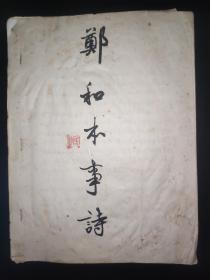 鄭和本事詩